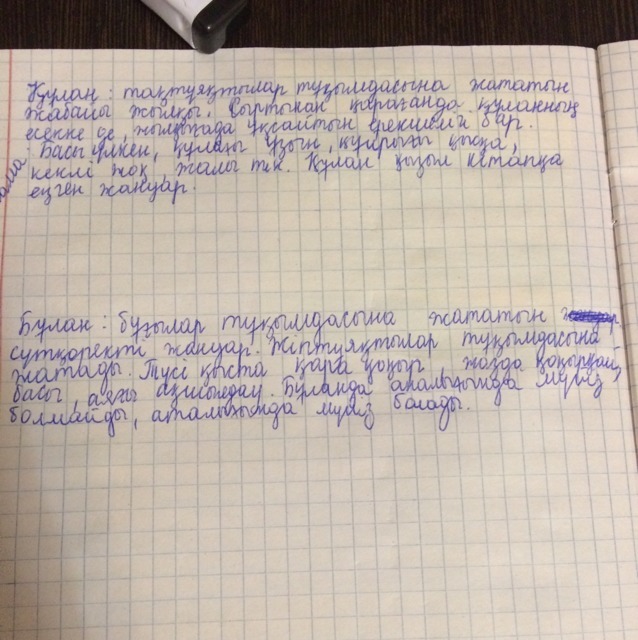 Құлан: тақтұяқтылар тұқымдасына жататын
жабайы жылқы. Сыртынан қарағанда құланның
есекке де, жылқығада ұқсайтын ерекшелігі бар.
Басы үлкен, құлағы ұзын, құйрығы қысқа,
кекілі жоқ, жалы тік. Құлан қызыл кітапқа
енген жануар.
Бұлан: бұғылар тұқымдасына жататын
сүтқоректі жануар. Жұптұяқтылар тұқымдасына
жатады. Түсі қыста қара қоңыр жазда қоңырқай,
басы, аяғы ақшылдау. Бұланда аналығында мүйіз
болмайды, аталығында мүйіз болады.